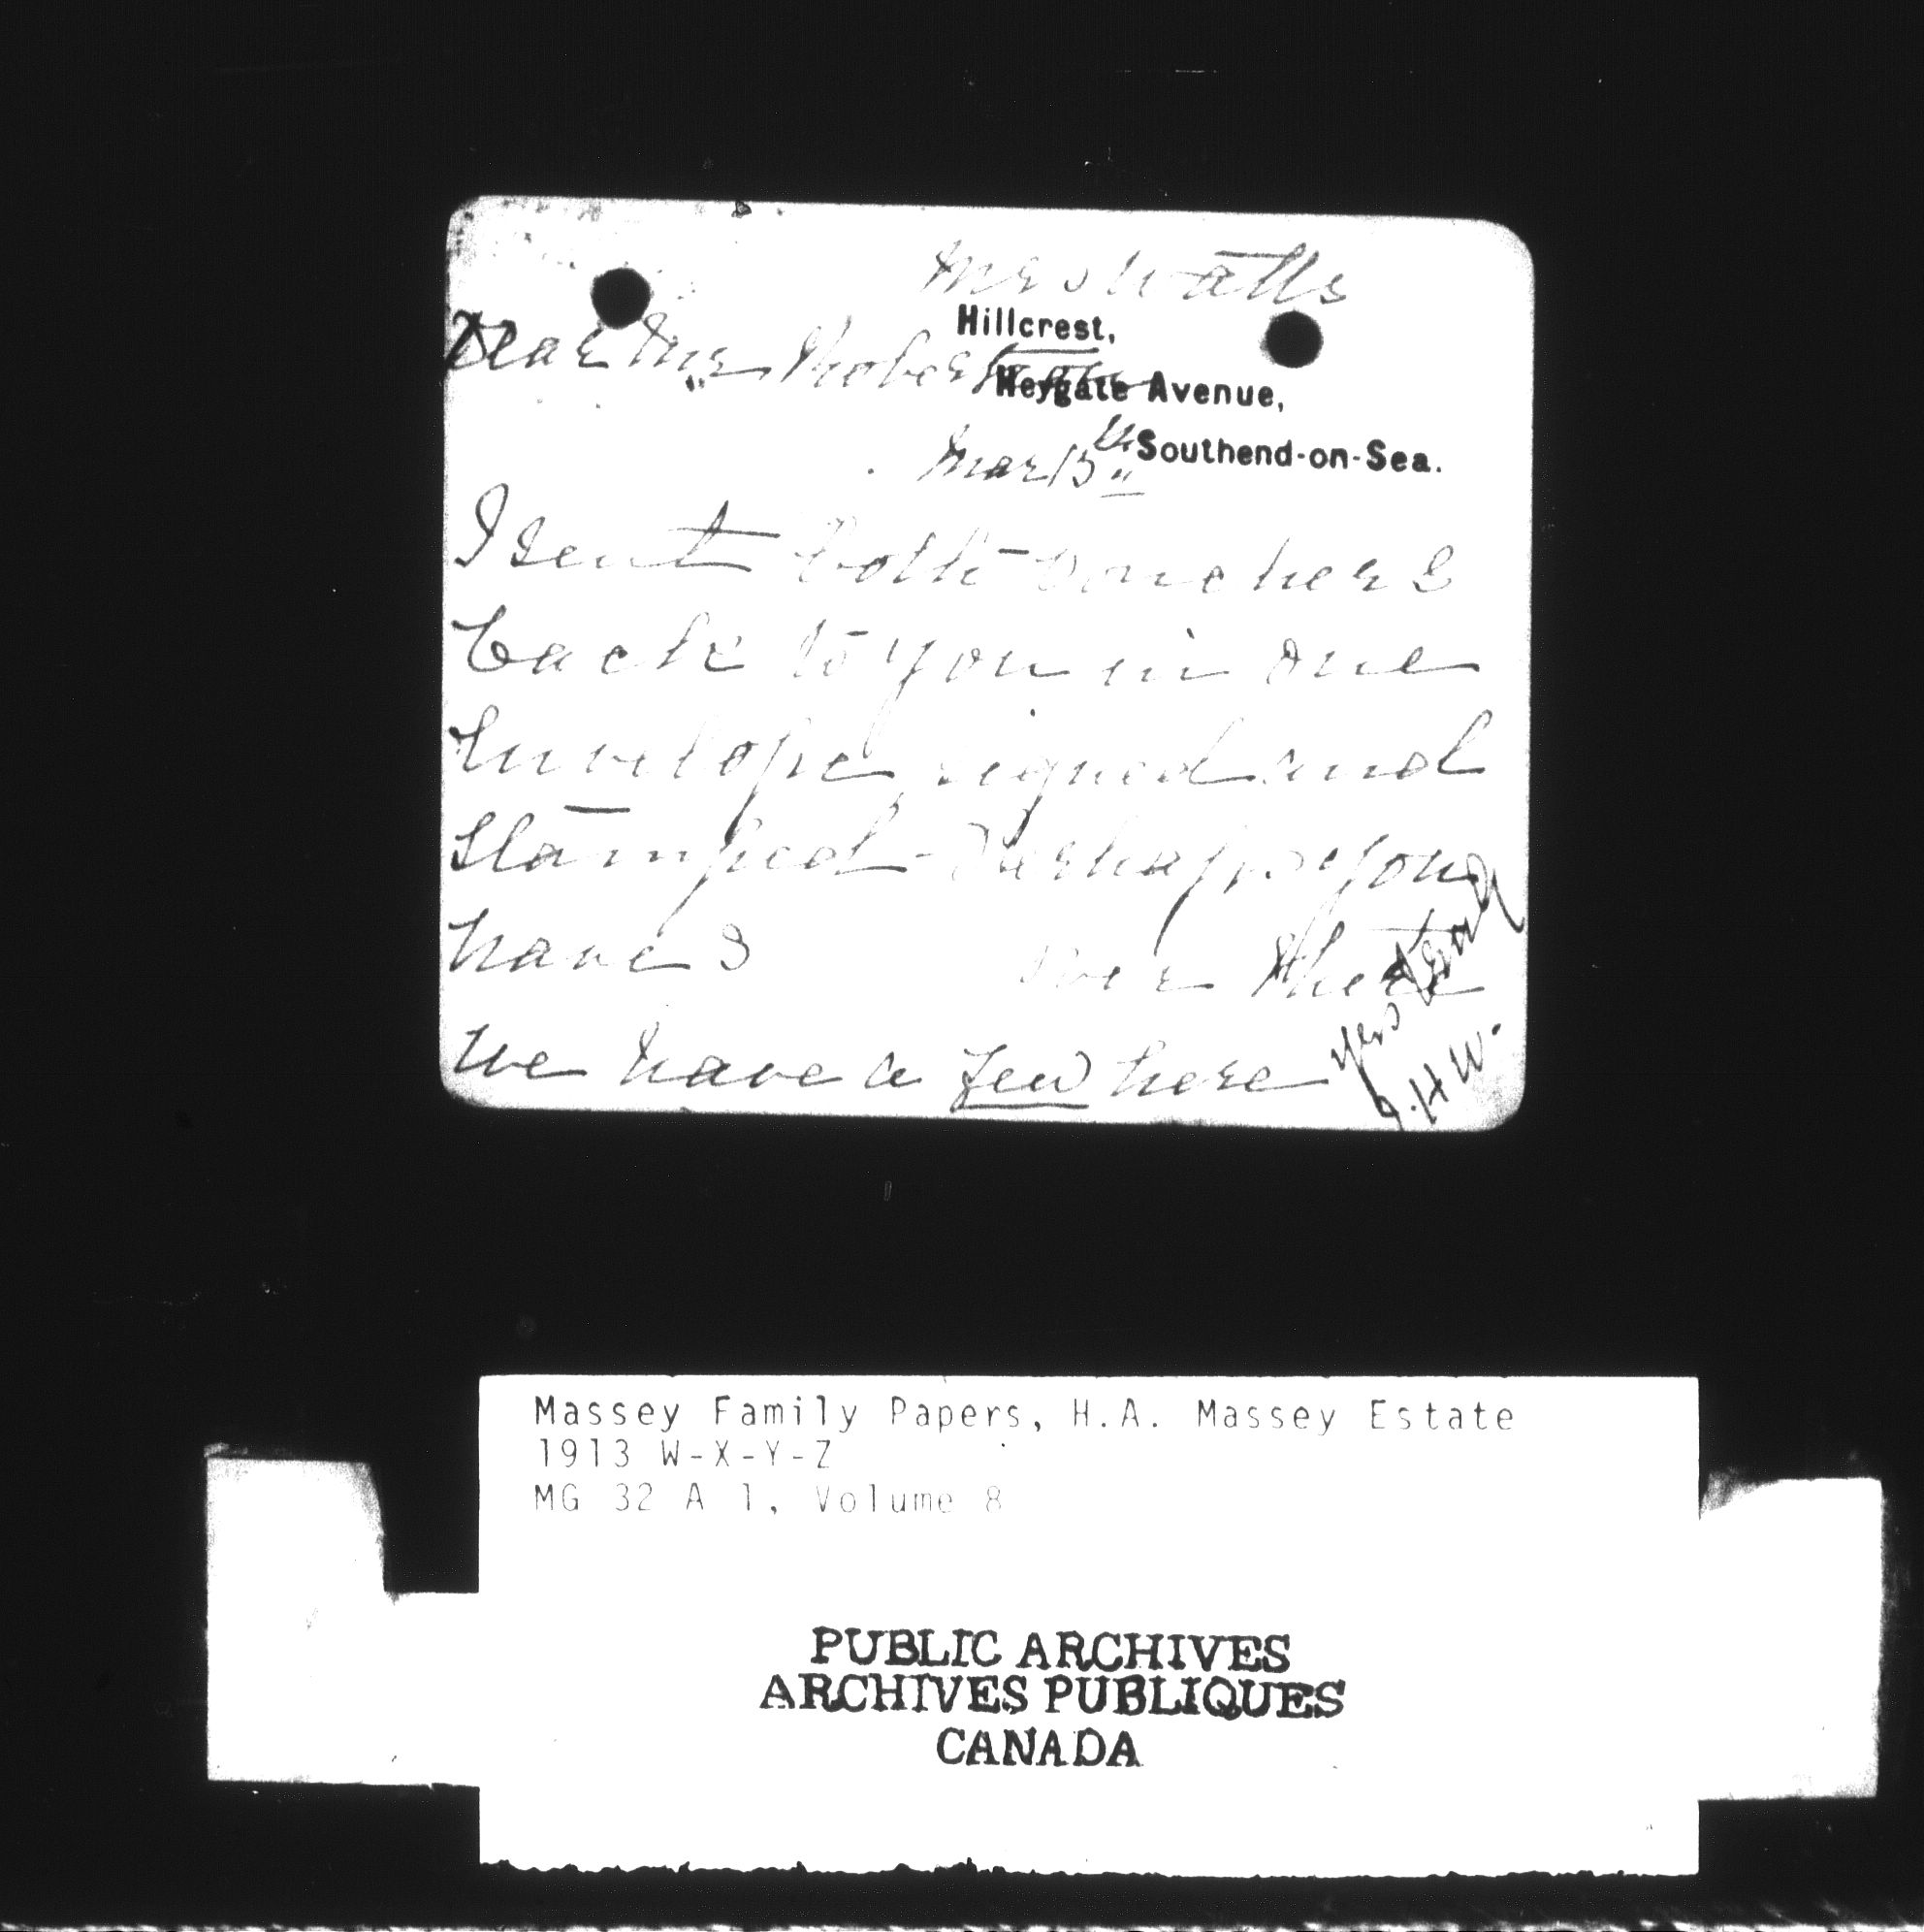 Mrs Watts
Hillcrest,
Dear Mr
Heygate Avenue,
Mar 13th Southend-on-Sea.
I sent both vouchers
back to you in one
Envelope, signed and
Stamped - Perhaps you
have over there
We have a few here
yrs
J.H.W.
Massey Family Papers, H.A. Massey Estate
1913 W-X-Y-Z
MG 32 A 1, Volume 8
PUBLIC ARCHIVES
ARCHIVES PUBLIQUES
CANADA